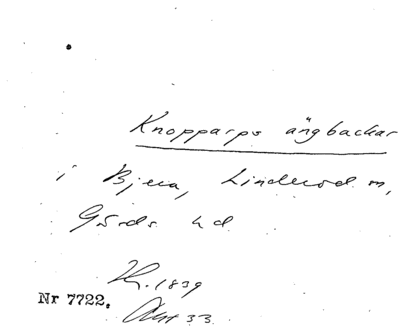 Knopparps ängbackar
i Bjera, Linderöd sn,
Gärds hd
1839
Nr 7722.
Akt 33